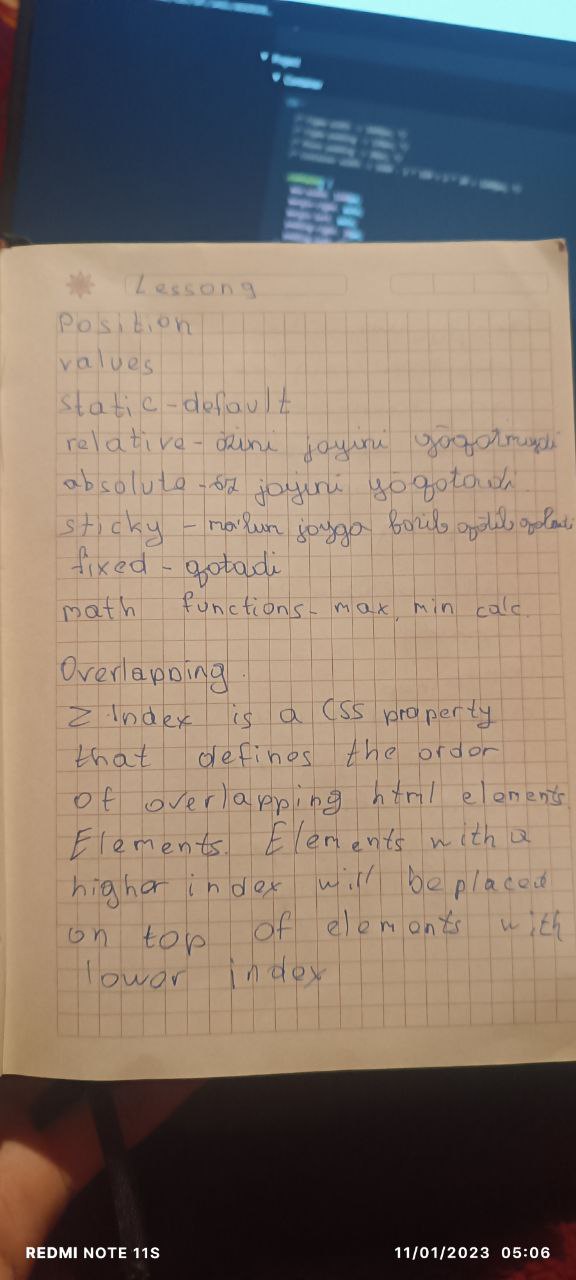 Lesson 9
Position
values
static - default
relative - özini joyini yöqotmaydi
absolute - öz joyini yöqotadi
sticky - ma'lum joyga borib qotib qoladi
fixed - qotadi
math functions - max, min calc.
Overlapping.
Z Index is a CSS property
that defines the order
of overlapping html elements
Elements. Elements with a
higher index will be placed
on top of elements with
lower index
REDMI NOTE 11S
11/01/2023 05:06